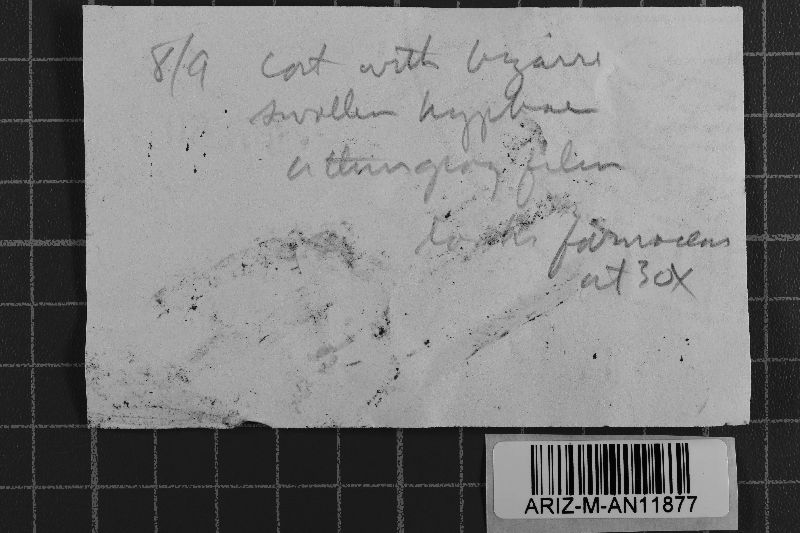 8/9 Cort with bizarre
swollen hyphae
a thin gray film
looks farinaceous
at 30X
ARIZ-M-AN11877